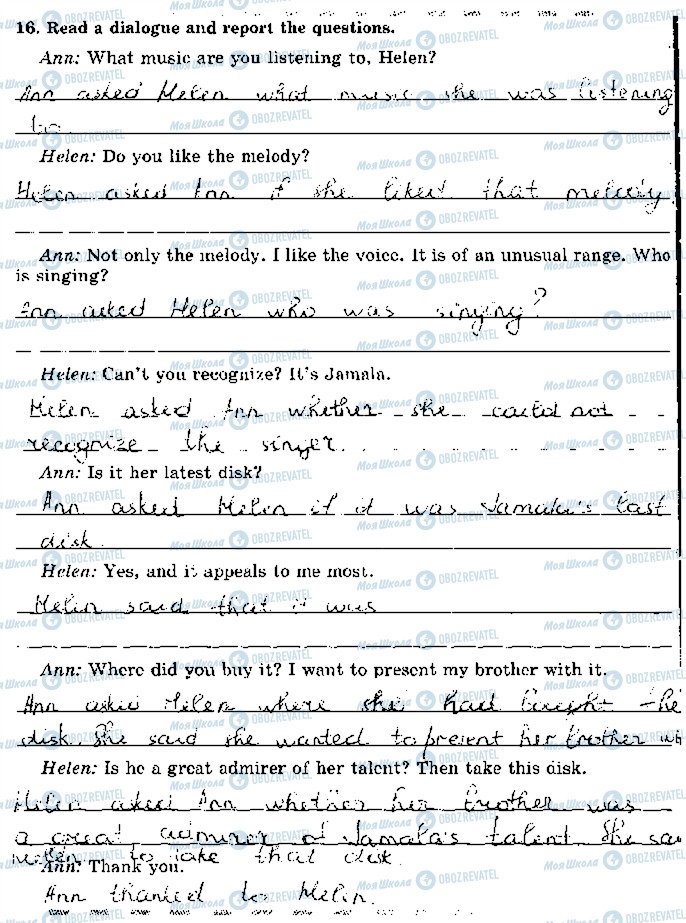 16. Read a dialogue and report the questions.
Ann: What music are you listening to, Helen?
Ann asked Helen what music she was listening
to.
Helen: Do you like the melody?
Helen asked Ann if she liked that melody
Ann: Not only the melody. I like the voice. It is of an unusual range. Who
is singing?
Ann asked Helen who was singing?
Helen: Can't you recognize? It's Jamala.
Helen asked Ann whether she could not
recognize the singer.
Ann: Is it her latest disk?
Ann asked Helen if it was Jamala's last
disk.
Helen: Yes, and it appeals to me most.
Helen said that it was
Ann: Where did you buy it? I want to present my brother with it.
Ann asked Helen where she had bought the
disk. She said she wanted to present her brother with
Helen: Is he a great admirer of her talent? Then take this disk.
Helen asked Ann whether her brother was
a great admirer of Jamala's talent. She
to take that disk.
Ann: Thank you.
Ann thanked to Helen.
Моя Школа OBOZREVATEL